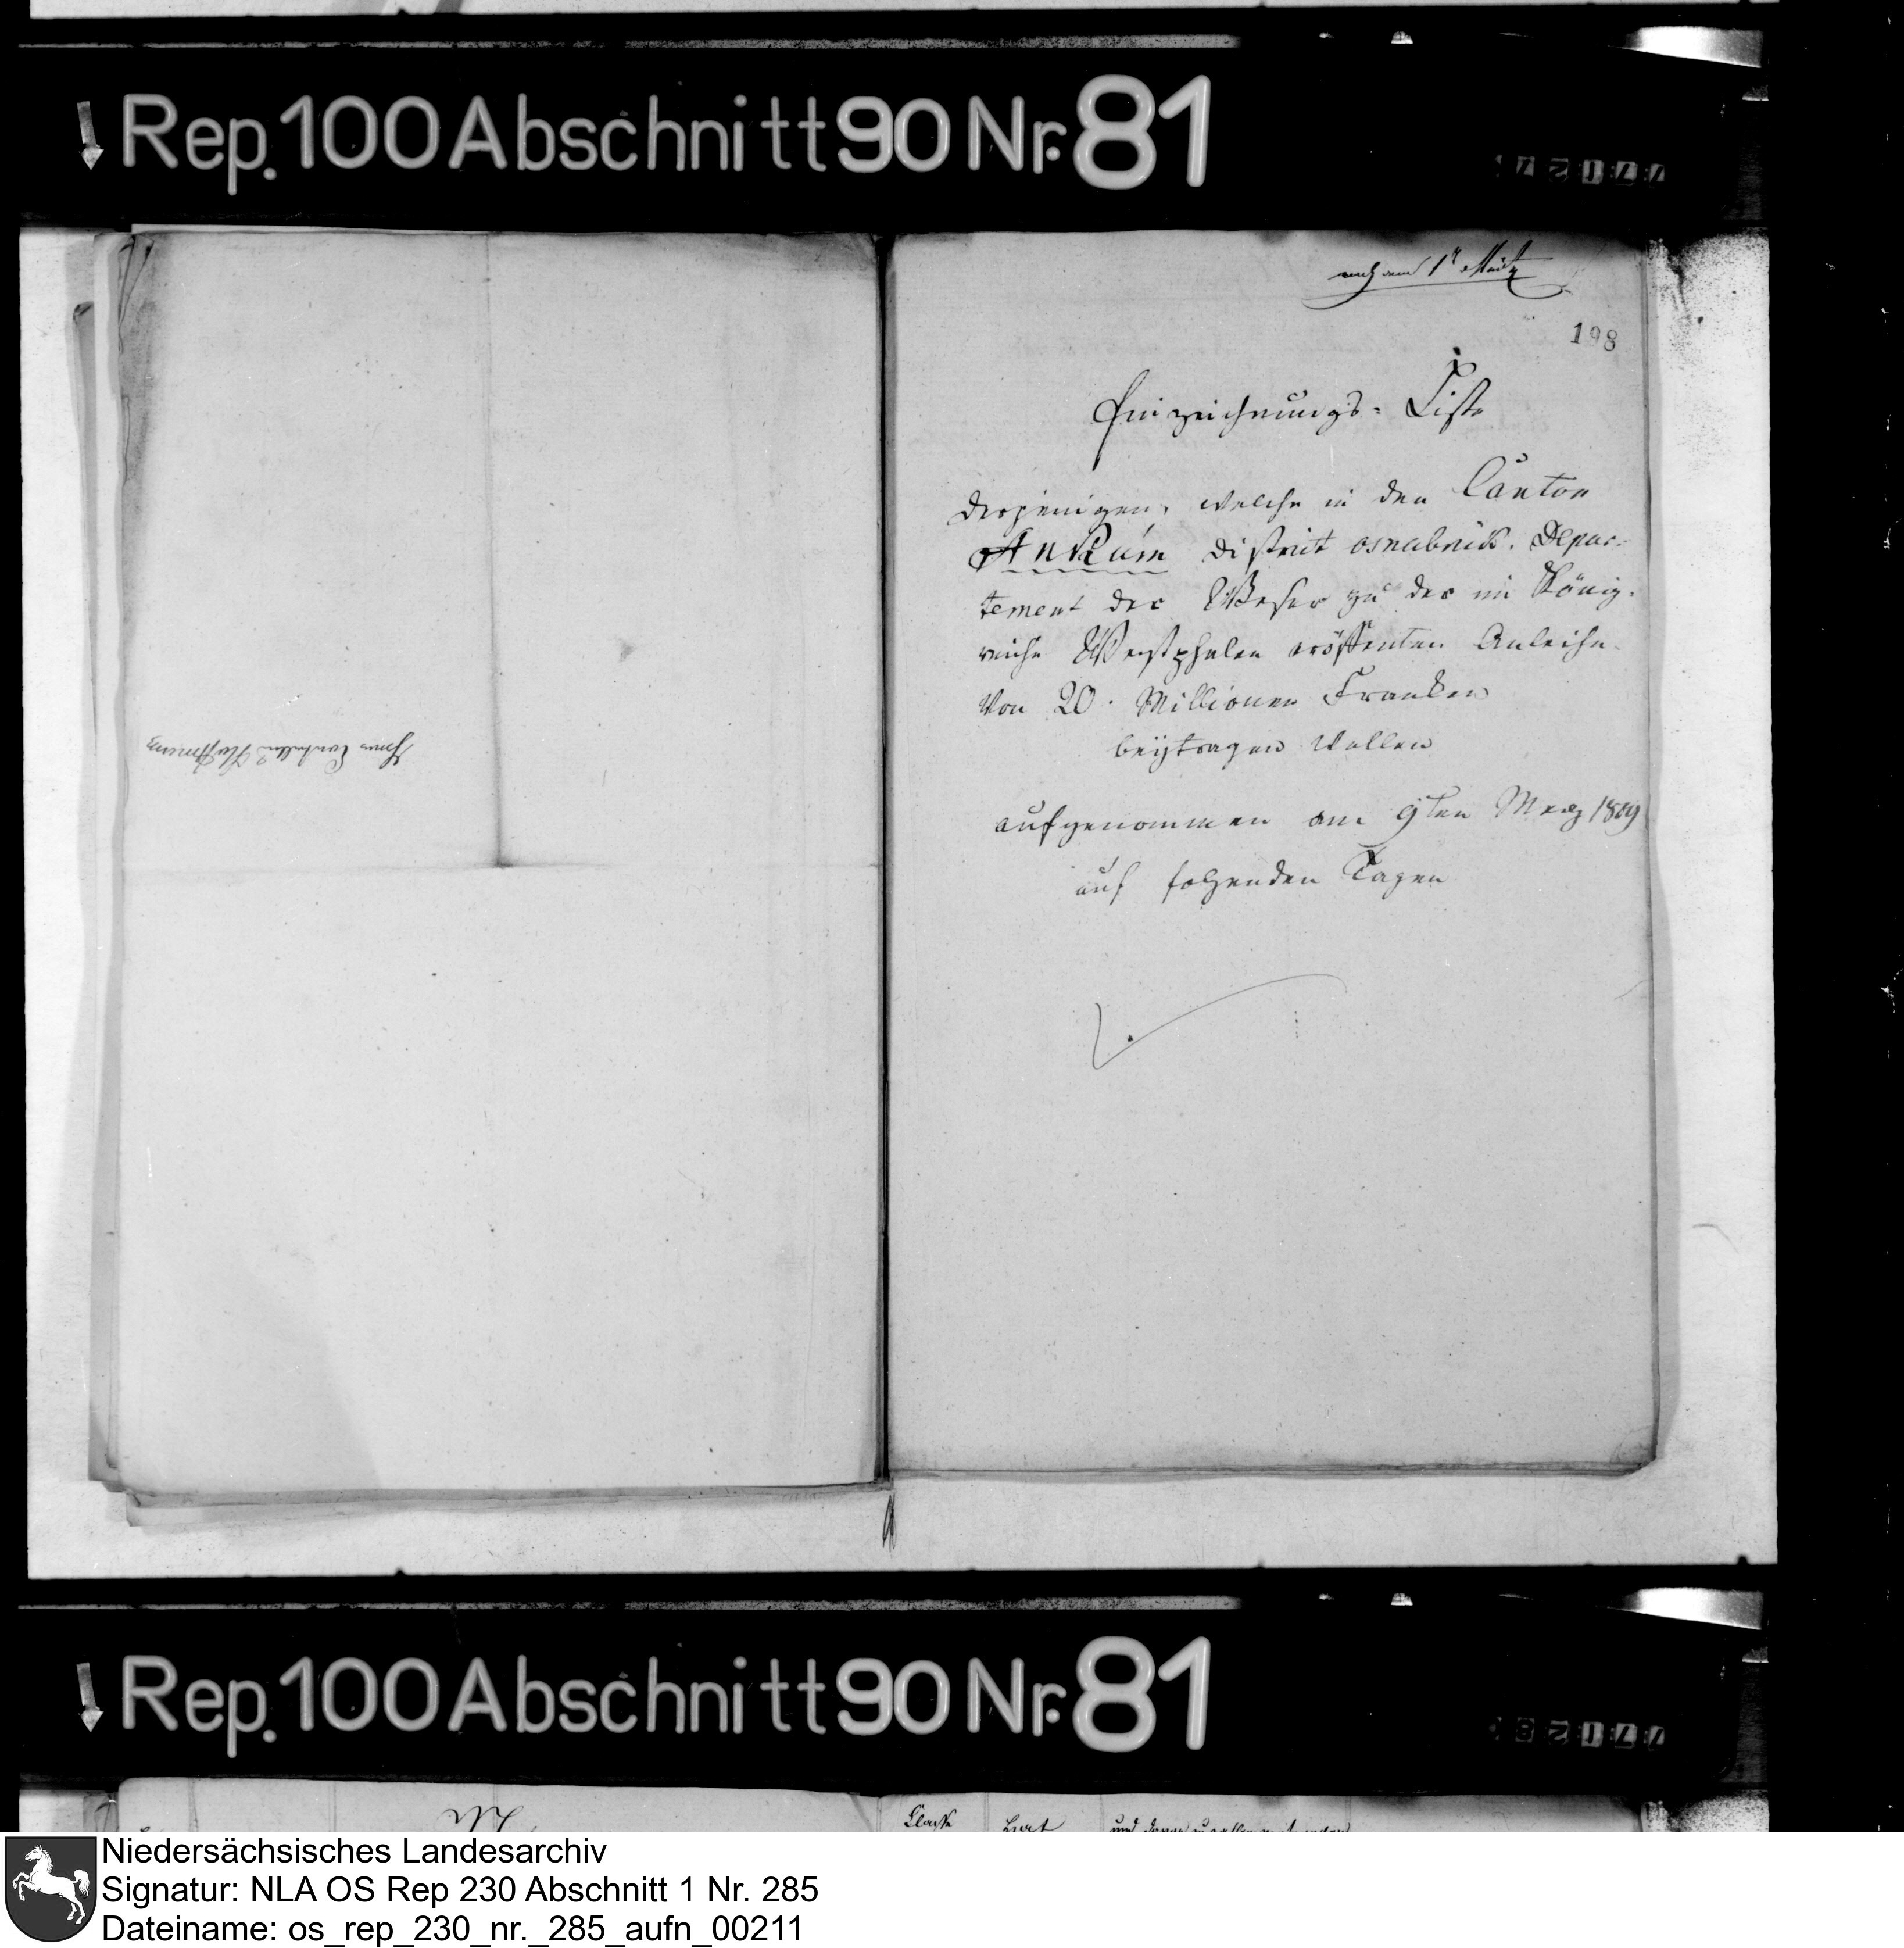 Rep. 100 Abschnitt 90 Nr. 81
nach dem 1t Märtz
198
Einzeichnungs- Liste
derjenigen, welche in den Canton
Ankum District Osnabrück. Depar-
tement der Weser zu der im König-
reiche Westphalen eröffenten Anleihe
von 20. Millionen Franken
beytragen wollen
aufgenommen am 9ten Merz 1809
auf folgenden Tagen
Rep. 100 Abschnitt 90 Nr. 81
Classe
und
Niedersächsisches Landesarchiv
Signatur: NLA OS Rep 230 Abschnitt 1 Nr. 285
Dateiname: os_rep_230_nr._285_aufn_00211